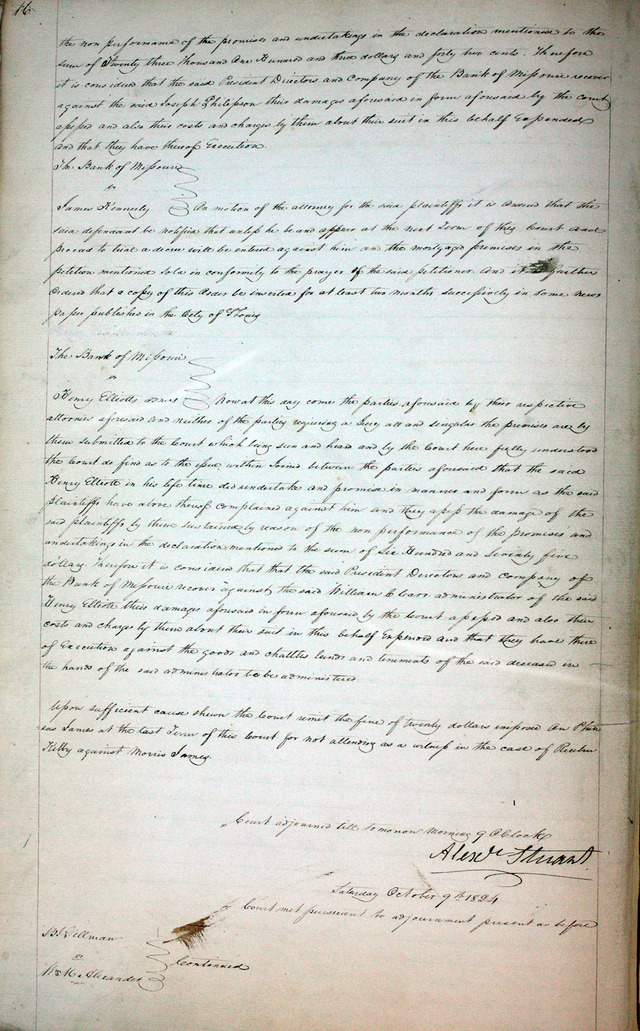 16
the non performance of the promises and undertakings in the declaration mentioned to the
sum of Twenty three Thousand One Hundred and three dollars and forty two cents. Therefore
it is considered that the said President Directors and Company of the Bank of Missouri recover
against the said Joseph Philipson their damages aforesaid in form aforesaid by the court
assessed and also their costs and charges by them about their suit in this behalf expended
and that they have thereof Execution
The Bank of Missouri
vs
James Kennerly On motion of the attorney for the said plaintiffs it is ordered that the
said defendant be notified that unless he be and appear at the next Term of this Court and
proceed to trial a decree will be entered against him and the mortgaged premises in the
petition mentioned sold in conformity to the prayer of the said petitioner And it is further
ordered that a copy of this Order be inserted for at least two months successively in some news
paper published in the City of St Louis
The Bank of Missouri
vs
Henry Elliotts admr Now at this day come the parties aforesaid by their respective
attornies aforesaid and neither of the parties requiring a Jury all and singular the premises are by
them submitted to the Court which being seen and heard and by the Court here fully understood
the Court do find as to the issue within Joined between the parties aforesaid that the said
Henry Elliott in his life time did undertake and promise in manner and form as the said
plaintiffs have above thereof complained against him and they assess the damage of the
said plaintiffs by them sustained by reason of the non performance of the promises and
undertakings in the declaration mentioned to the sum of Six Hundred and Seventy five
dollars. Therefore it is considered that that the said President Directors and company of
the Bank of Missouri recover against the said William C Carr administrator of the said
Henry Elliott their damages aforesaid in form aforesaid by the Court assessed and also their
costs and charges by them about their suit in this behalf Expended And that they have there
of Execution against the goods and chattles lands and tenements of the said deceased in
the hands of the said administrator to be administered
Upon sufficient cause shewn the Court remit the fine of twenty dollars imposed on Phin
eas James at the last Term of this Court for not attending as a witness in the case of Reuben
Kelby against Morris James.
Court adjourned till tomorrow Morning 9 OClock
Alexr Stuart
Saturday October 9th 1824
Court met pursuant to adjournment present as before
Tillman
vs
Continued
Wm McAlexander